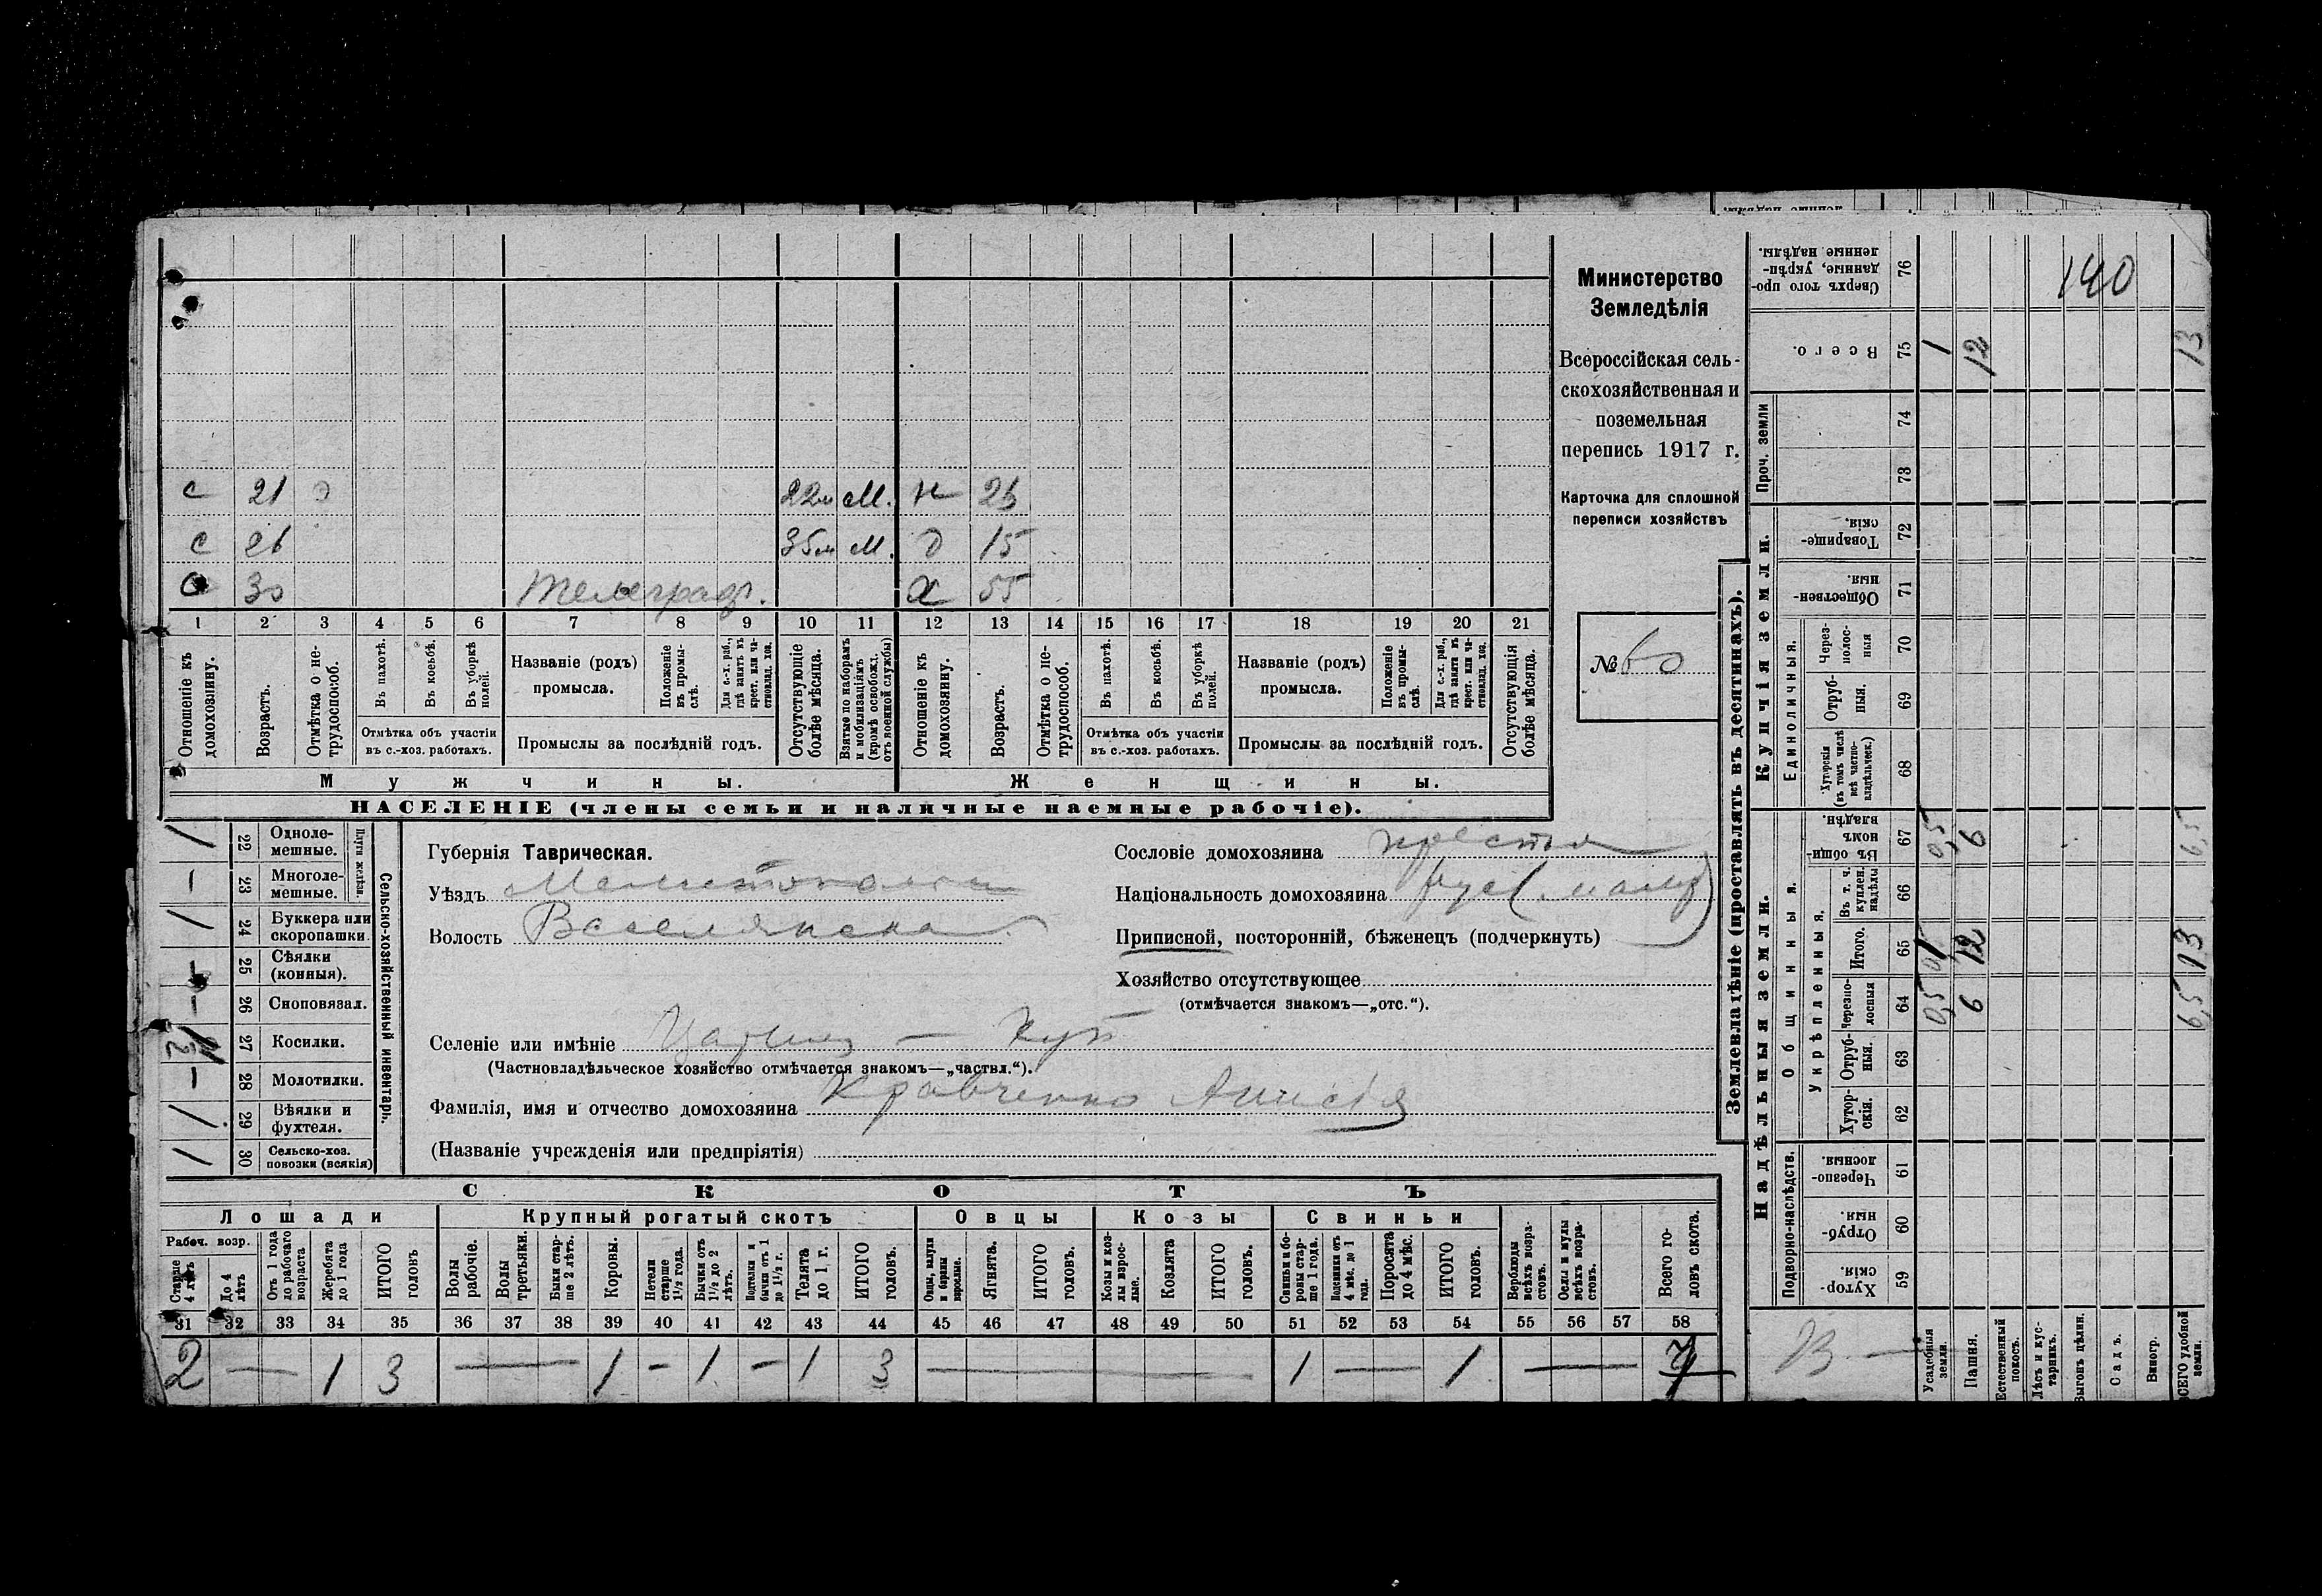 Министерство
Земледѣлія
Всероссійская сель-
скохозяйственная и
поземельная
перепись 1917 г.
Карточка для сплошной
переписи хозяйствъ
№ 60
с 21 22м М. н 23
с 26 35м М. д 15
с 30 Телеграф. х 55
1 2 3 4 5 6 7 8 9 10 11 12 13 14 15 16 17 18 19 20 21
Отношеніе къ домохозяину.
Возрастъ.
Отмѣтка о не-трудоспособ.
Въ пахотѣ.
Въ косьбѣ.
Въ уборкѣ полей.
Отмѣтка объ участіи
въ с.-хоз. работахъ.
Названіе (родъ)
промысла.
Положеніе въ промы-слѣ.
Для с.-х. раб., гдѣ занятъ въ крест. или ча-стновлад. хоз.
Промыслы за послѣдній годъ.
Отсутствующіе болѣе мѣсяца.
Взятые по наборамъ и мобилизаціямъ (кромѣ освобожд. отъ военной службы)
Отношеніе къ домохозяину.
Возрастъ.
Отмѣтка о не-трудоспособ.
Въ пахотѣ.
Въ косьбѣ.
Въ уборкѣ полей.
Отмѣтка объ участіи
въ с.-хоз. работахъ.
Названіе (родъ)
промысла.
Положеніе въ промы-слѣ.
Для с.-х. раб., гдѣ заняты въ крест. или ча-стновлад. хоз.
Промыслы за послѣдній годъ.
Отсутствующія болѣе мѣсяца.
Мужчины. Женщины.
НАСЕЛЕНІЕ (члены семьи и наличные наемные рабочіе).
Сельско-хозяйственный инвентарь.
Плуги желѣзн.
22 Одноле-мешные.
23 Многоле-мешные.
24 Буккера или скоропашки.
25 Сѣялки (конныя).
26 Сноповязал.
27 Косилки.
28 Молотилки.
29 Вѣялки и фухтеля.
30 Сельско-хоз. повозки (всякія)
Губернія Таврическая.
Уѣздъ Мелитопольск
Волость Веселянская
Селеніе или имѣніе Царицын - Кут
(Частновладѣльческое хозяйство отмѣчается знакомъ—„частвл.“).
Фамилія, имя и отчество домохозяина Кравченко Анисія
(Названіе учрежденія или предпріятія)
Сословіе домохозяина крестья
Національность домохозяина рус (малор)
Приписной, посторонній, бѣженецъ (подчеркнуть)
Хозяйство отсутствующее
(отмѣчается знакомъ—„отс.“).
СКОТЪ
Лошади Крупный рогатый скотъ Овцы Козы Свиньи
Рабоч. возр.
Старше 4 лѣтъ
До 4 лѣтъ
Отъ 1 года до рабочаго возраста
Жеребята до 1 года
ИТОГО головъ
Волы рабочіе.
Волы третьяки.
Быки стар-ше 2 лѣтъ.
Коровы.
Нетели старше 1½ года.
Бычки отъ 1½ до 2 лѣтъ.
Подтелки и бычки отъ 1 до 1½ г.
Телята до 1 г.
ИТОГО головъ.
Овцы, валухи и бараны взрослые.
Ягнята.
ИТОГО головъ.
Козы и коз-лы взрос-лые.
Козлята
ИТОГО головъ.
Свиньи и бо-ровы стар-ше 1 года.
Подсвинки отъ 4 мѣс. до 1 года.
Поросята до 4 мѣс.
ИТОГО головъ.
Верблюды всѣхъ возра-стовъ.
Ослы и мулы всѣхъ возра-стовъ.
Всего го-ловъ скота.
31 32 33 34 35 36 37 38 39 40 41 42 43 44 45 46 47 48 49 50 51 52 53 54 55 56 57 58
2 — 1 3 — 1 - 1 - 1 3 — 1 — 1 — 7
Землевладѣніе (проставлять въ десятинахъ).
Надѣльныя земли. Купчія земли.
Проч. земли
Подворно-наслѣдств.
Общинныя.
Укрѣпленныя.
Единоличныя.
59 Хутор-скія.
60 Отруб-ныя.
61 Черезпо-лосныя.
62 Хутор-скія.
63 Отруб-ныя.
64 Черезпо-лосныя 0,5 6 6,5
65 Итого. 1 12 13
66 Въ т. ч. куплен. надѣлы
67 Въ общин-номъ владѣн. 0,5 6 6,5
68 Хуторскія (въ томъ числѣ всѣ частно-владѣльческ.)
69 Отруб-ныя.
70 Через-полос-ныя
71 Обществен-ныя.
72 Товарище-скія.
73
74
75 Всего. 1 12 13
76 Сверхъ того про-данные, укрѣп-ленные надѣлы.
140
Усадебныя земли.
Пашня.
Естественный покосъ.
Лѣсъ и кус-тарникъ.
Выгонъ цѣлин.
Садъ.
Виногр.
ВСЕГО удобной земли.